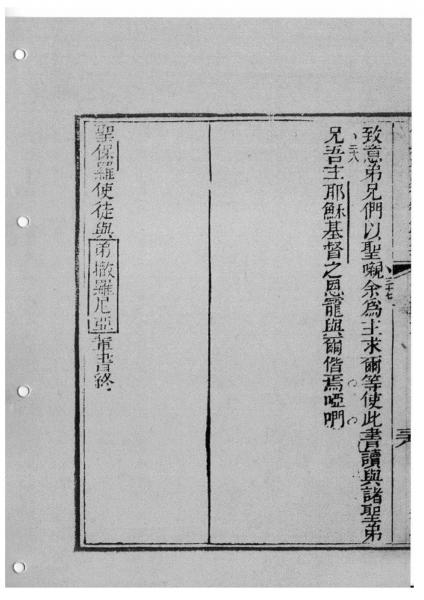 致意弟兄們以聖嚫二七余為主求爾等使此書讀與諸聖弟
兄二八吾主耶穌基督之恩寵與爾偕焉啞們
聖保羅使徒與弟撒羅尼亞輩書終